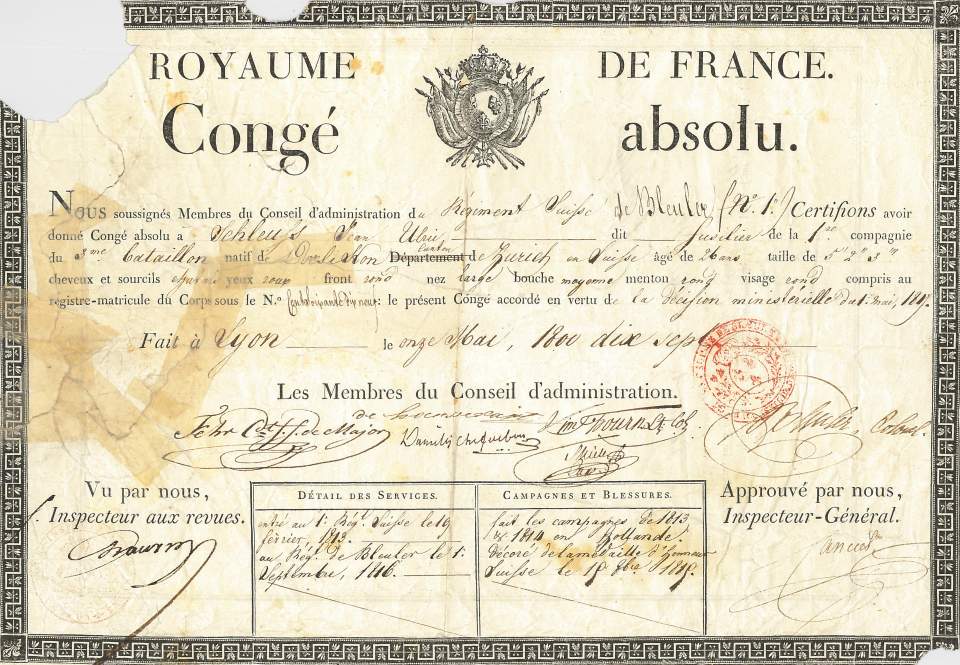 ROYAUME DE FRANCE.
Congé absolu.
NOUS soussignés Membres du Conseil d'administration du Régiment Suisse de Bleuler (N.º 1.) Certifions avoir
donné Congé absolu a Schleuss Jean Ulric dit fusilier de la 1.re compagnie
du 3.me bataillon natif de Canton Département de Zurich en Suisse âgé de 26 ans taille de 5" 2" 3"
cheveux et sourcils yeux front rond nez large bouche moyenne menton rond visage rond compris au
régistre-matricule du Corps sous le N.º le présent Congé accordé en vertu de la décision ministérielle du 1. mai, 1817.
Fait à Lyon le onze Mai, 1800 dix sept
Les Membres du Conseil d'administration.
Fehr de Major
Colonel
Vu par nous,
Inspecteur aux revues.
DÉTAIL DES SERVICES.
entré au 1. Rég. Suisse le 19
février, 1813.
au Rég. de Bleuler le 1.
Septembre, 1816.
CAMPAGNES ET BLESSURES.
fait les campagnes de 1813
& 1814 en Hollande.
Décoré de la médaille d'honneur
Suisse le
Approuvé par nous,
Inspecteur-Général.